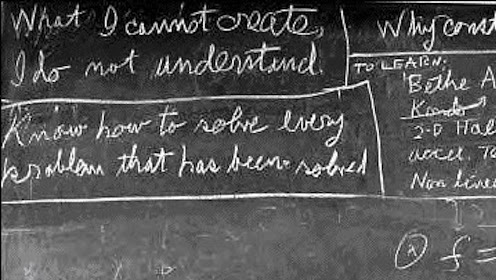 What I cannot create,
I do not understand.
Know how to solve every
problem that has been solved
Why const
TO LEARN:
Bethe A
Kondo
2-D Hall
accel. T
Non linea
f =